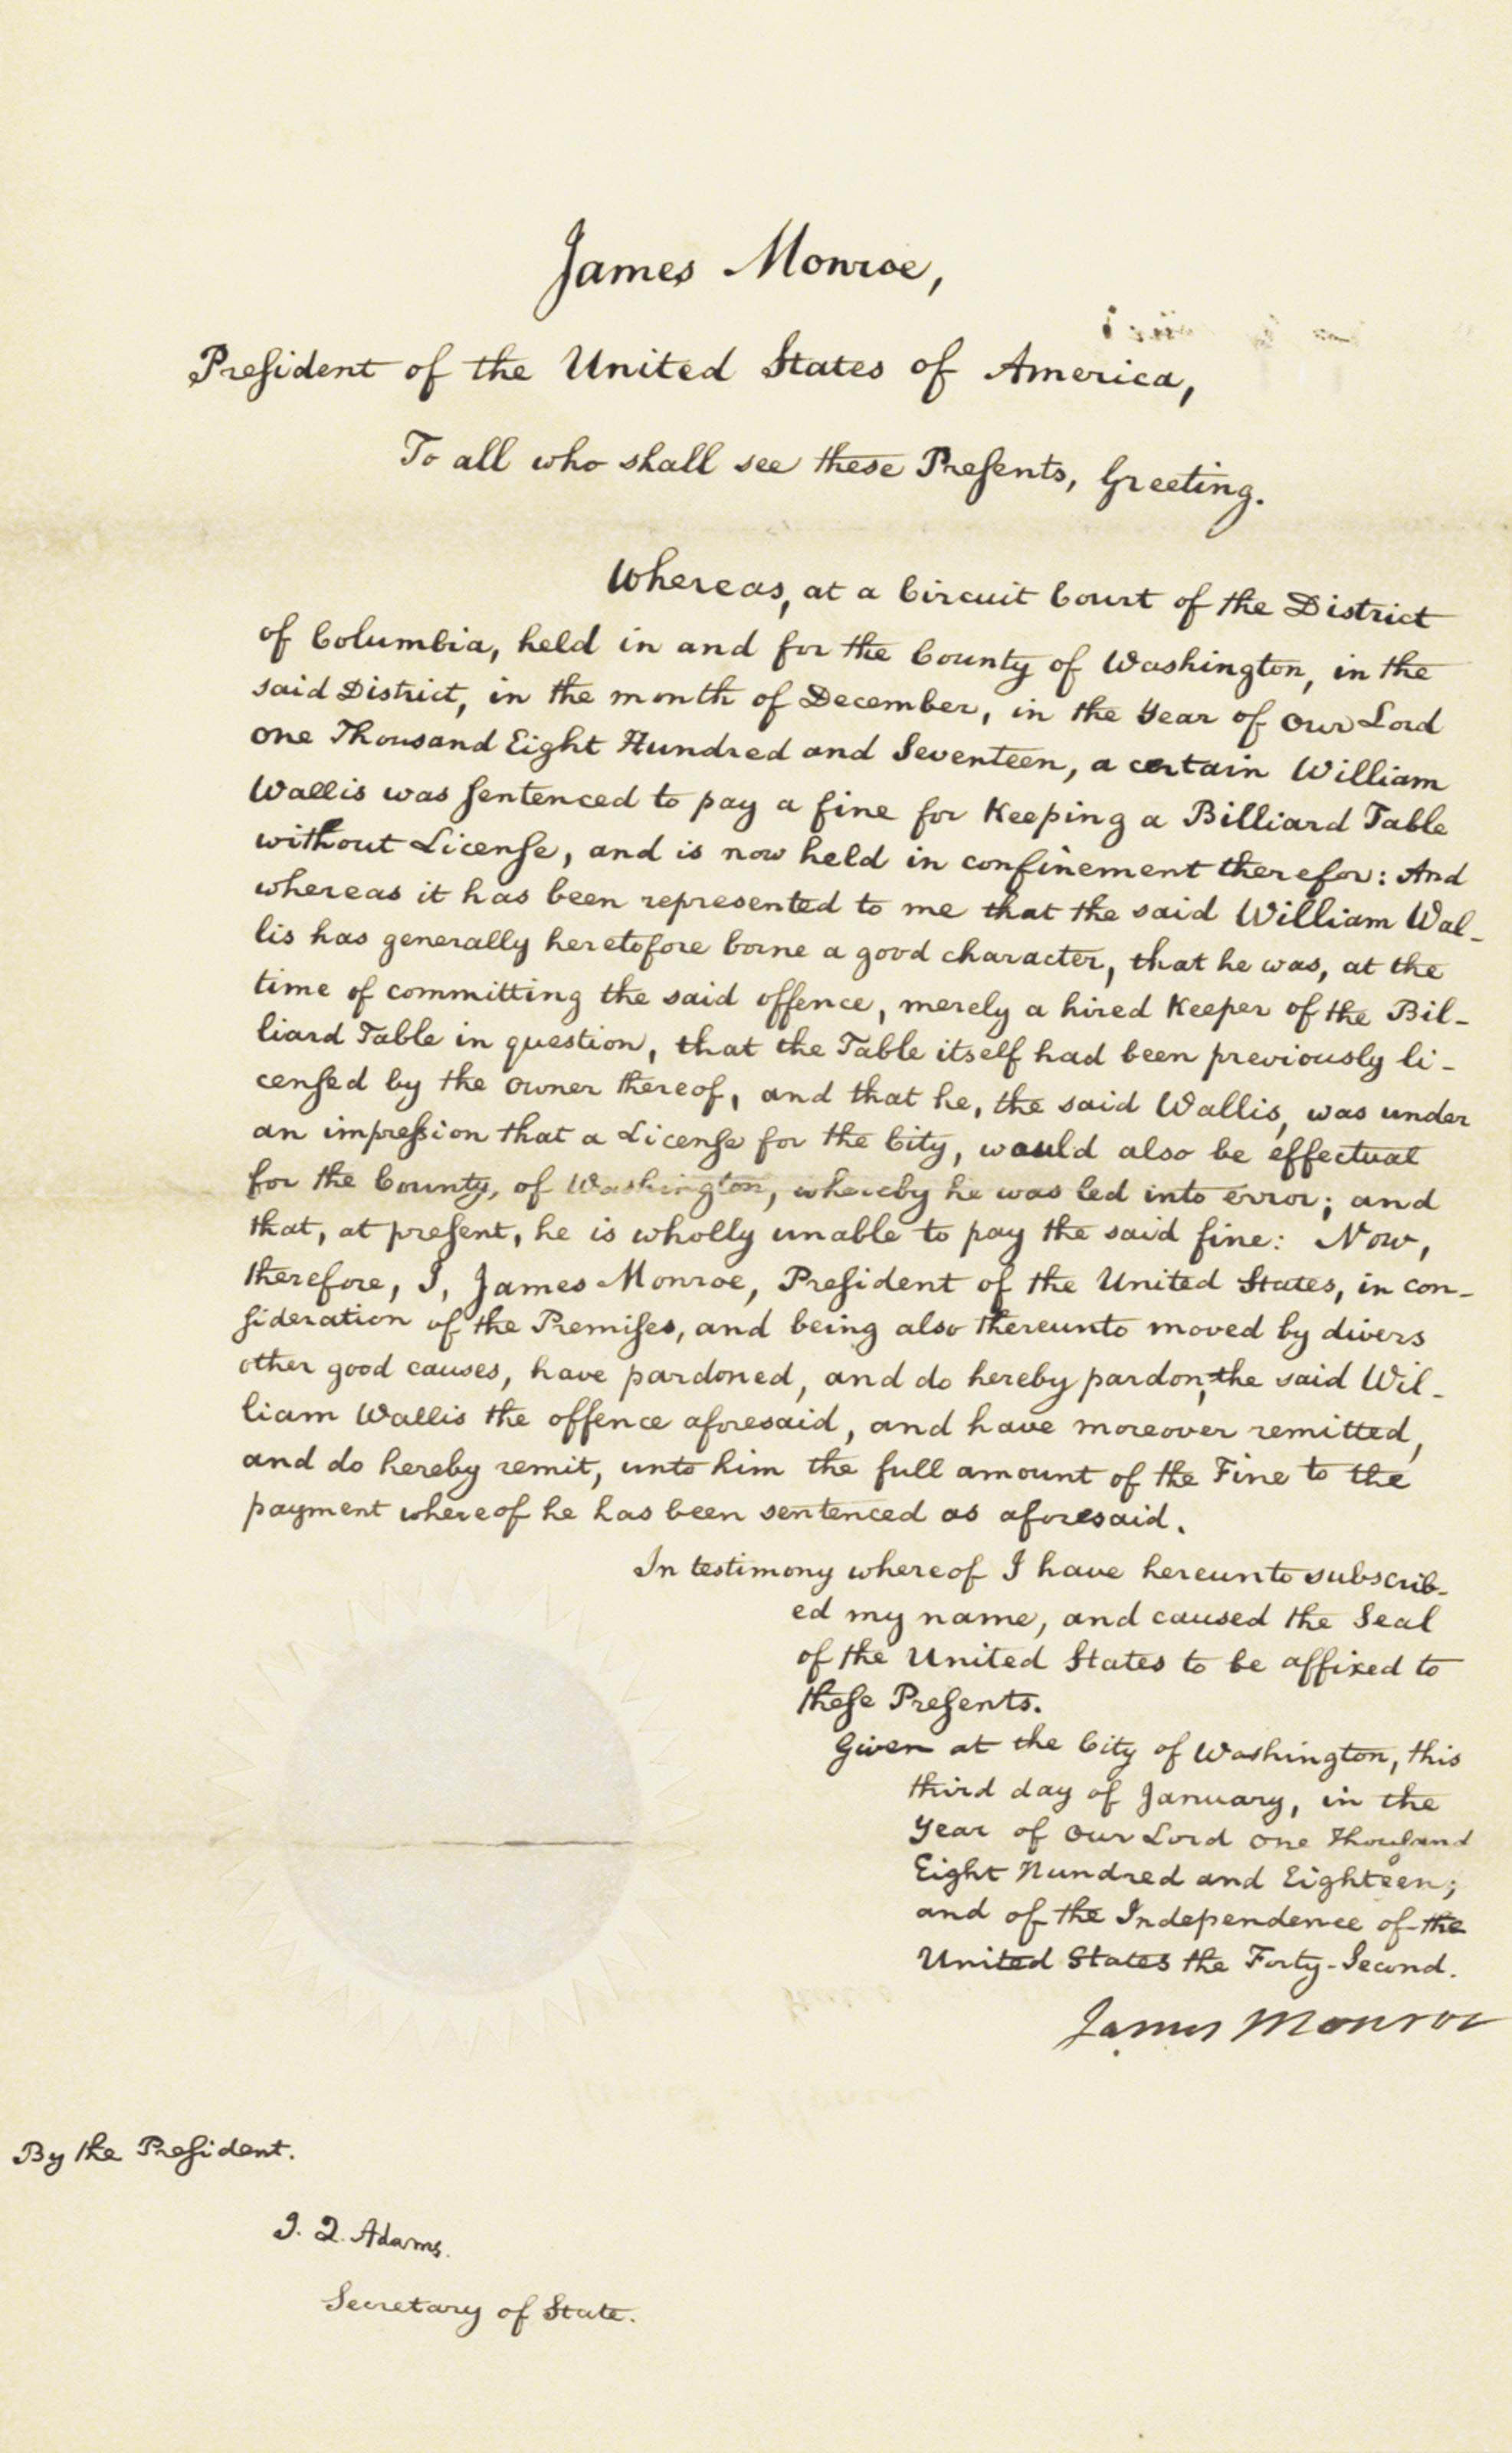 James Monroe,
President of the United States of America,
To all who shall see these Presents, Greeting.
Whereas, at a Circuit Court of the District
of Columbia, held in and for the County of Washington, in the
said District, in the month of December, in the Year of Our Lord
one Thousand Eight Hundred and Seventeen, a certain William
Wallis was sentenced to pay a fine for Keeping a Billiard Table
without License, and is now held in confinement therefor: And
whereas it has been represented to me that the said William Wal-
lis has generally heretofore borne a good character, that he was, at the
time of committing the said offence, merely a hired Keeper of the Bil-
liard Table in question, that the Table itself had been previously li-
censed by the Owner thereof, and that he, the said Wallis, was under
an impression that a License for the City, would also be effectual
for the County, of Washington, whereby he was led into error; and
that, at present, he is wholly unable to pay the said fine: Now,
therefore, I, James Monroe, President of the United States, in con-
sideration of the Premises, and being also thereunto moved by divers
other good causes, have pardoned, and do hereby pardon, the said Wil-
liam Wallis the offence aforesaid, and have moreover remitted,
and do hereby remit, unto him the full amount of the Fine to the
payment whereof he has been sentenced as aforesaid.
In testimony whereof I have hereunto subscrib-
ed my name, and caused the Seal
of the United States to be affixed to
these Presents.
Given at the City of Washington, this
third day of January, in the
Year of Our Lord One Thousand
Eight Hundred and Eighteen;
and of the Independence of the
United States the Forty-Second.
James Monroe
By the President.
J. Q. Adams.
Secretary of State.